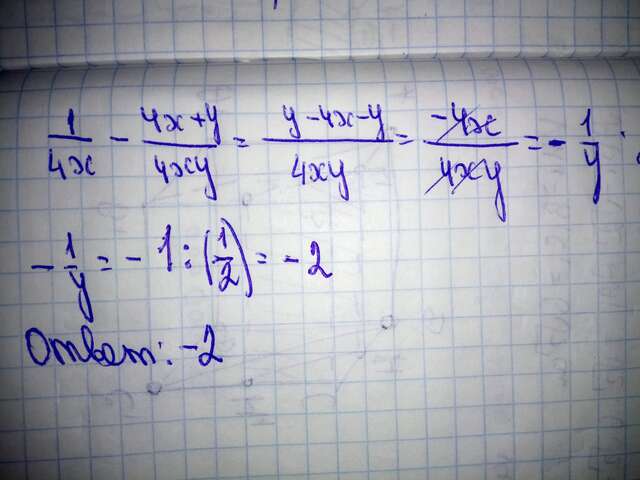 1/4x - 4x+y/4xy = y-4x-y/4xy = -4x/4xy = - 1/y ;
- 1/y = - 1 : (1/2) = - 2
Ответ: -2